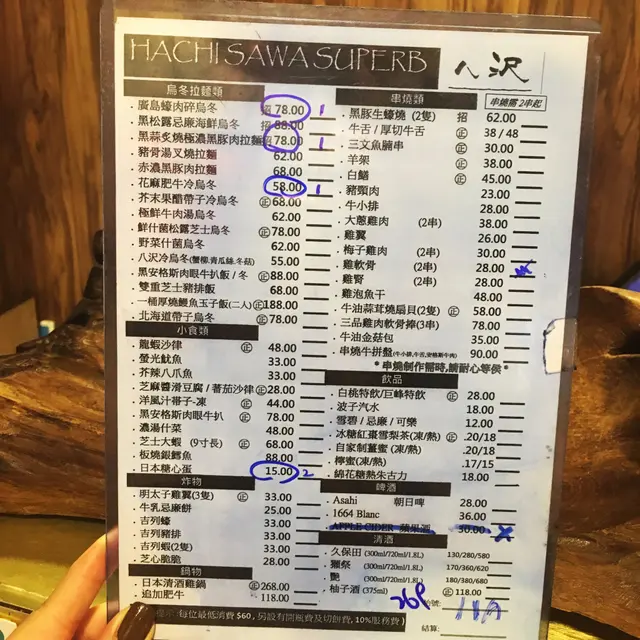 HACHI SAWA SUPERB
八沢
烏冬拉麵類
廣島蠔肉碎烏冬 招 78.00 1
黑松露忌廉海鮮烏冬 招 88.00
黑蒜炙燒極濃黑豚肉拉麵 招 78.00 1
豬骨湯叉燒拉麵 62.00
赤濃黑豚肉拉麵 68.00
花麻肥牛冷烏冬 58.00 1
芥末果醋帶子冷烏冬 正 68.00
極鮮牛肉湯烏冬 62.00
鮮什菌松露芝士烏冬 正 78.00
野菜什菌烏冬 62.00
八沢冷烏冬(蟹柳.青瓜絲.冬菇) 55.00
黑安格斯肉眼牛扒飯 / 冬 正 88.00
雙重芝士豬排飯 68.00
一桶厚燒鰻魚玉子飯(二人) 正 188.00
北海道帶子烏冬 正 78.00
小食類
龍蝦沙律 正 48.00
螢光魷魚 33.00
芥辣八爪魚 33.00
芝麻醬滑豆腐 / 蕃茄沙律 正 28.00
洋風汁褶子-凍 正 44.00
黑安格斯肉眼牛扒 正 78.00
濃湯什菜 48.00
芝士大蝦 (9寸長) 正 68.00
板燒銀鱈魚 88.00
日本糖心蛋 15.00 2
炸物
明太子雞翼(3隻) 正 33.00
牛乳忌廉餅 25.00
吉列蠔 33.00
吉列豬排 33.00
吉列蝦(2隻) 33.00
芝心脆脆 28.00
鍋物
日本清酒雞鍋 正 268.00
追加肥牛 正 118.00
串燒類 串燒需 2串起
黑豚生蠔燒 (2隻) 招 62.00
牛舌 / 厚切牛舌 正 38 / 48
三文魚腩串 正 30.00
羊架 正 38.00
白鱔 正 45.00
豬頸肉 23.00
牛小排 28.00
大蔥雞肉 (2串) 38.00
雞翼 26.00
梅子雞肉 (2串) 30.00
雞軟骨 (2串) 28.00
雞腎 (2串) 28.00
雞泡魚干 48.00
牛油蒜茸燒扇貝(2隻) 正 58.00
三品雞肉軟骨捧(3串) 78.00
牛油金菇包 35.00
串燒牛拼盤(牛小排,牛舌,安格斯牛肉) 90.00
* 串燒制作需時,請耐心等侯 *
飲品
白桃特飲/巨峰特飲 正 28.00
波子汽水 18.00
雪碧 / 忌廉 / 可樂 12.00
冰糖紅棗雪梨茶(凍/熱) 正 .20/18
自家制薑蜜 (凍/熱) 正 .20/18
檸蜜(凍/熱) .17/15
綿花糖熱朱古力 18.00
啤酒
Asahi 朝日啤 28.00
1664 Blanc 36.00
APPLE CIDER 蘋果酒 30.00
清酒
久保田 (300ml/720ml/1.8L) 130/280/580
獺祭 (300ml/720ml/1.8L) 170/360/620
艷 (300ml/720ml/1.8L) 180/380/680
柚子酒 (375ml) 正 118.00
268
11A
提示:每位最低消費 $60 , 另設有開瓶費及切餅費, 10%服務費)
結算: